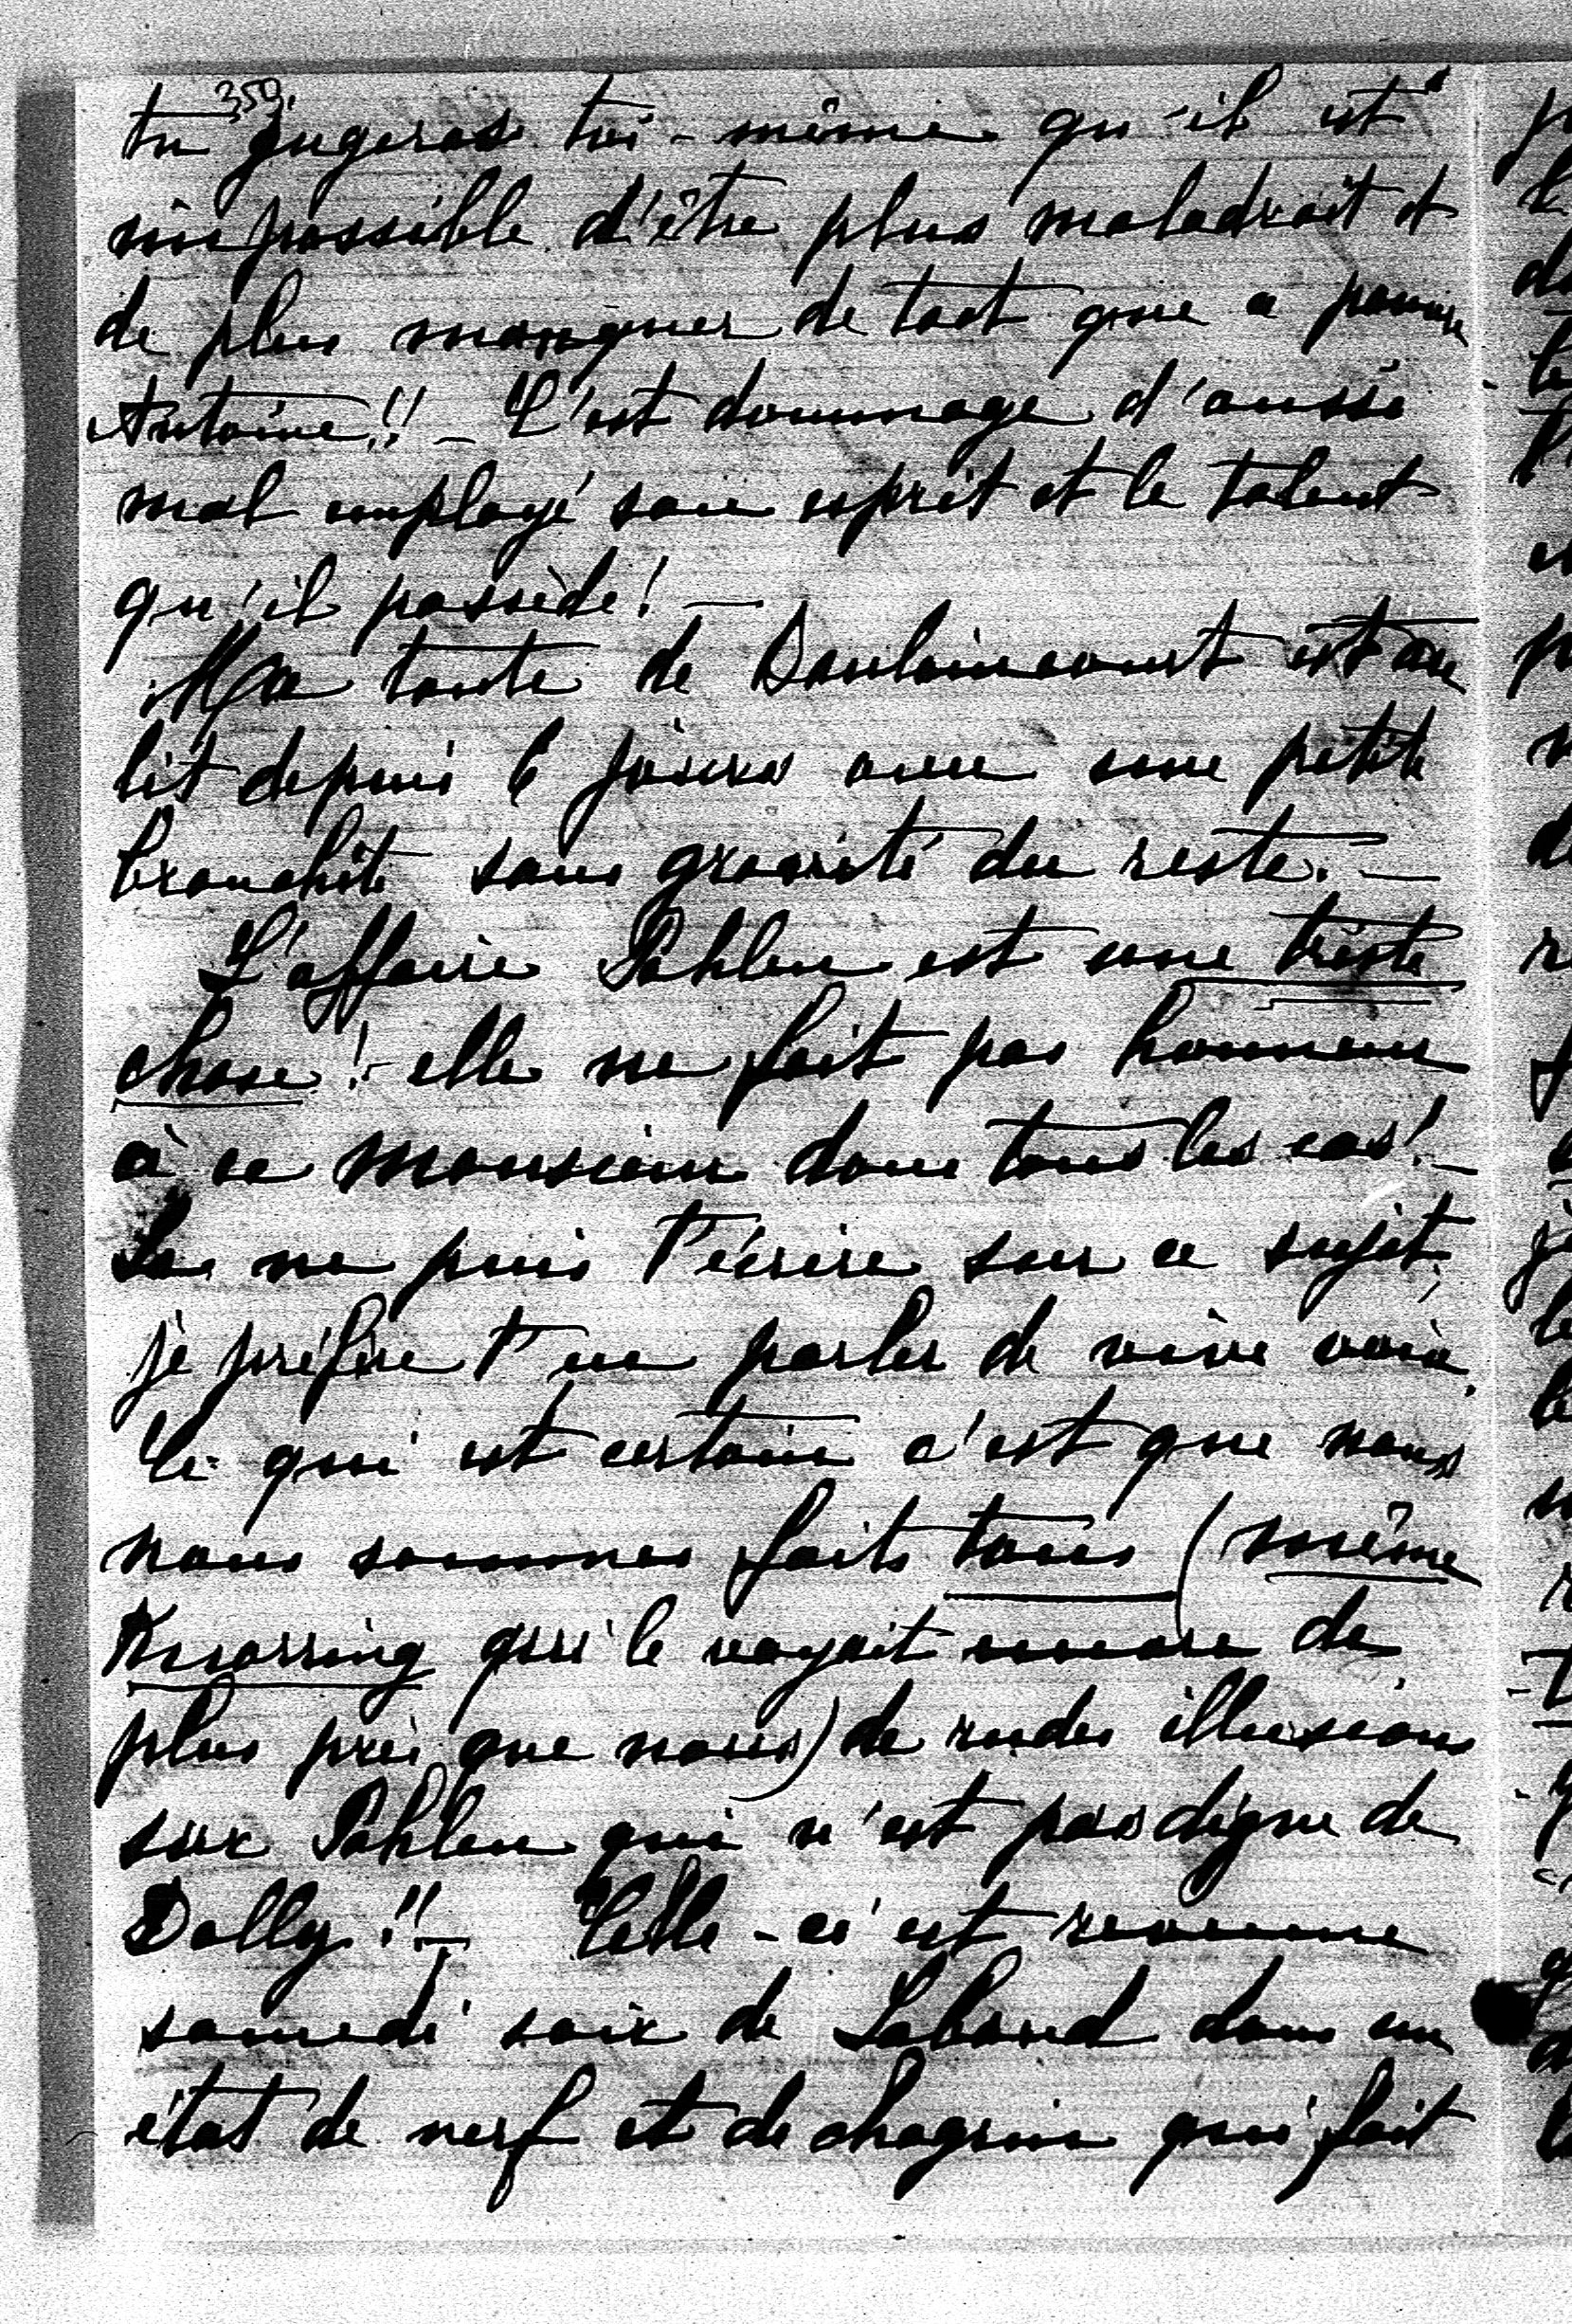 350.
tu jugeras toi-même qu'il est
impossible d'être plus maladroit et
de plus manquer de tact que ce pauvre
Antoine!! — C'est dommage d'aussi
mal employé son esprit et le talent
qu'il possède! —
Ma tante de Doulaincourt est au
lit depuis 6 jours avec une petite
bronchite sans gravité du reste. —
L'affaire Pahlen est une triste
chose! - elle ne fait pas honneur
à ce monsieur dans tous les cas! —
Je ne puis t'écrire sur ce sujet;
je préfère t'en parler de vive voix.
Ce qui est certain c'est que nous
nous sommes faits tous (même
Knorring qui le voyait encore de
plus près que nous) de rudes illusions
sur Pahlen qui n'est pas digne de
Dolly!! — Celle-ci est revenue
samedi soir de Laband dans un
état de nerf et de chagrin qui fait